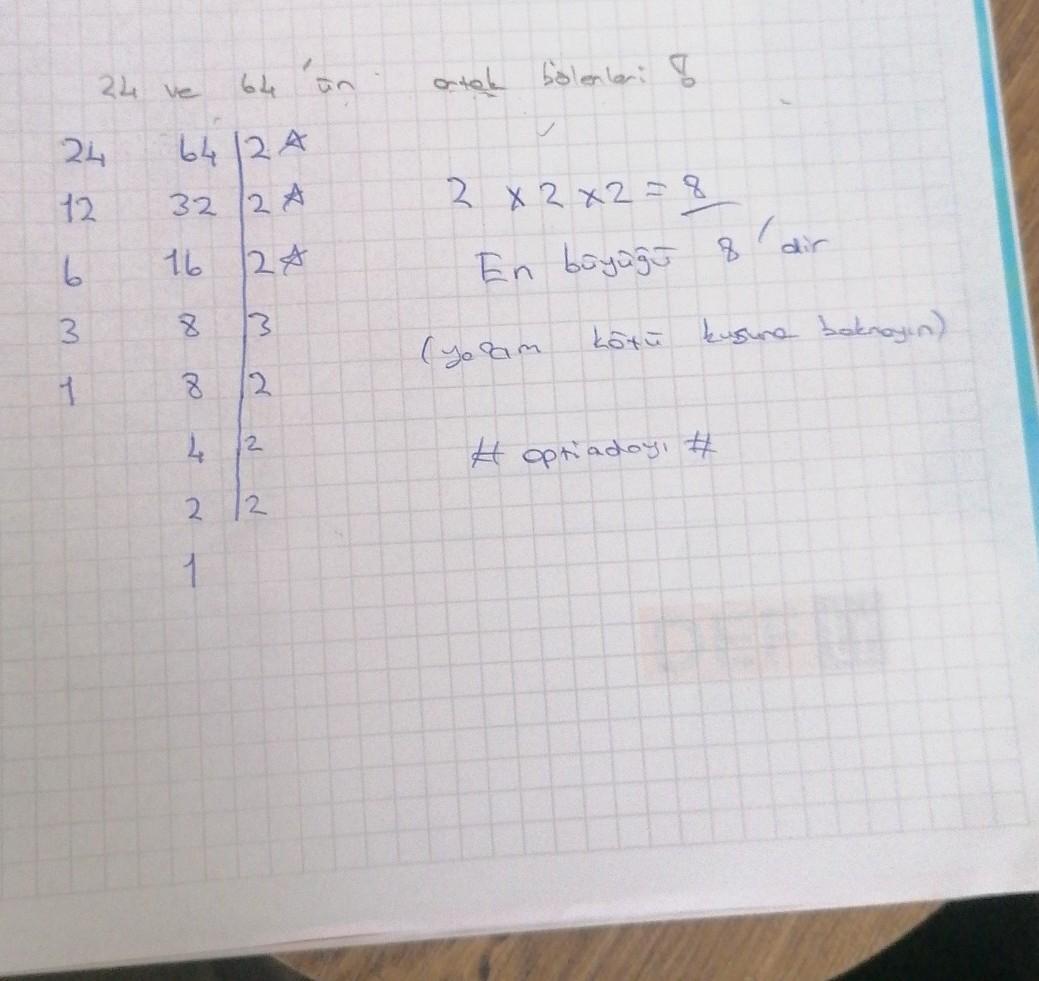 24 ve 64'ün ortak bölenleri 8
24 64 2 ☆
12 32 2 ☆
6 16 2 ☆
3 8 3
1 8 2
4 2
2 2
1
2 x 2 x 2 = 8
En büyüğü 8'dir
(yazım kötü kusura bakmayın)
# optiadayı #